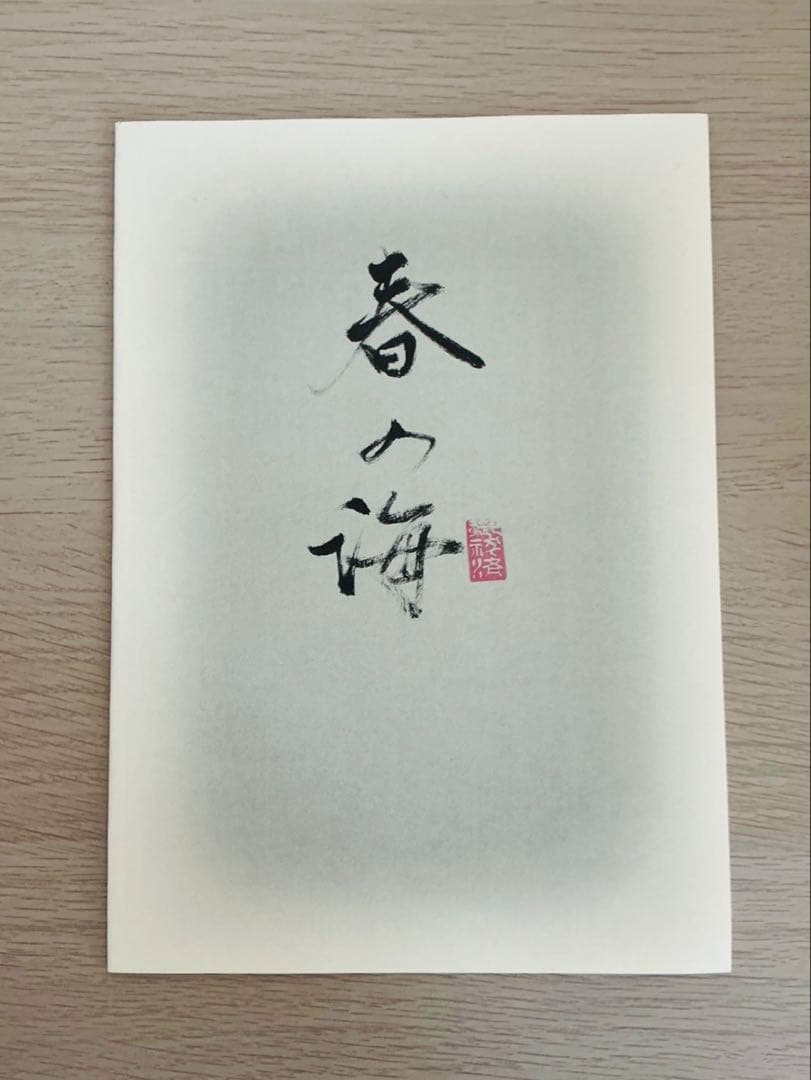 春の海